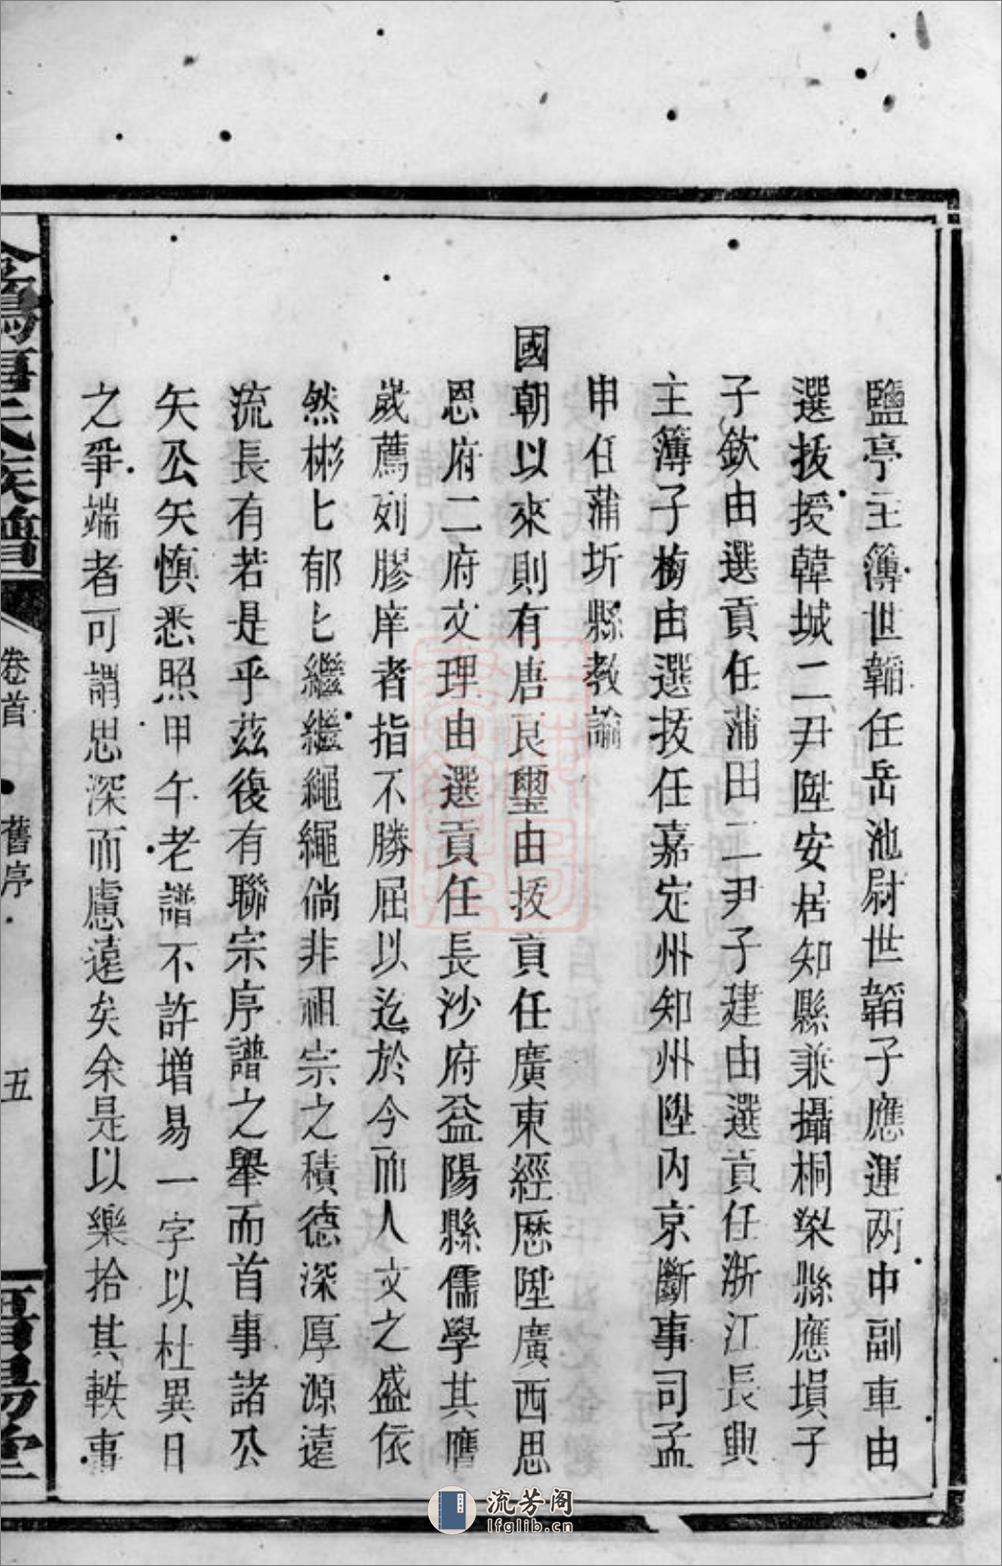 鹽亭主簿世韜任岳池尉世韜子應運兩中副車由
選拔授韓城二尹陞安居知縣兼攝桐梁縣應塤子
子欽由選貢任蒲田二尹子建由選貢任浙江長興
主簿子梅由選拔任嘉定州知州陞內京斷事司孟
申任蒲圻縣教諭
國朝以來則有唐良璽由拔貢任廣東經歷陞廣西思
恩府二府文理由選貢任長沙府益陽縣儒學其膺
歲薦列膠庠者指不勝屈以迄於今而人文之盛依
然彬匕郁匕繼繼繩繩倘非祖宗之積德深厚源遠
流長有若是乎茲復有聯宗序譜之舉而首事諸公
矢公矢慎悉照甲午老譜不許增易一字以杜異日
之爭端者可謂思深而慮遠矣余是以樂拾其軼事
氏族譜
卷首
舊序
五
堂
流芳阁
lfglib.cn